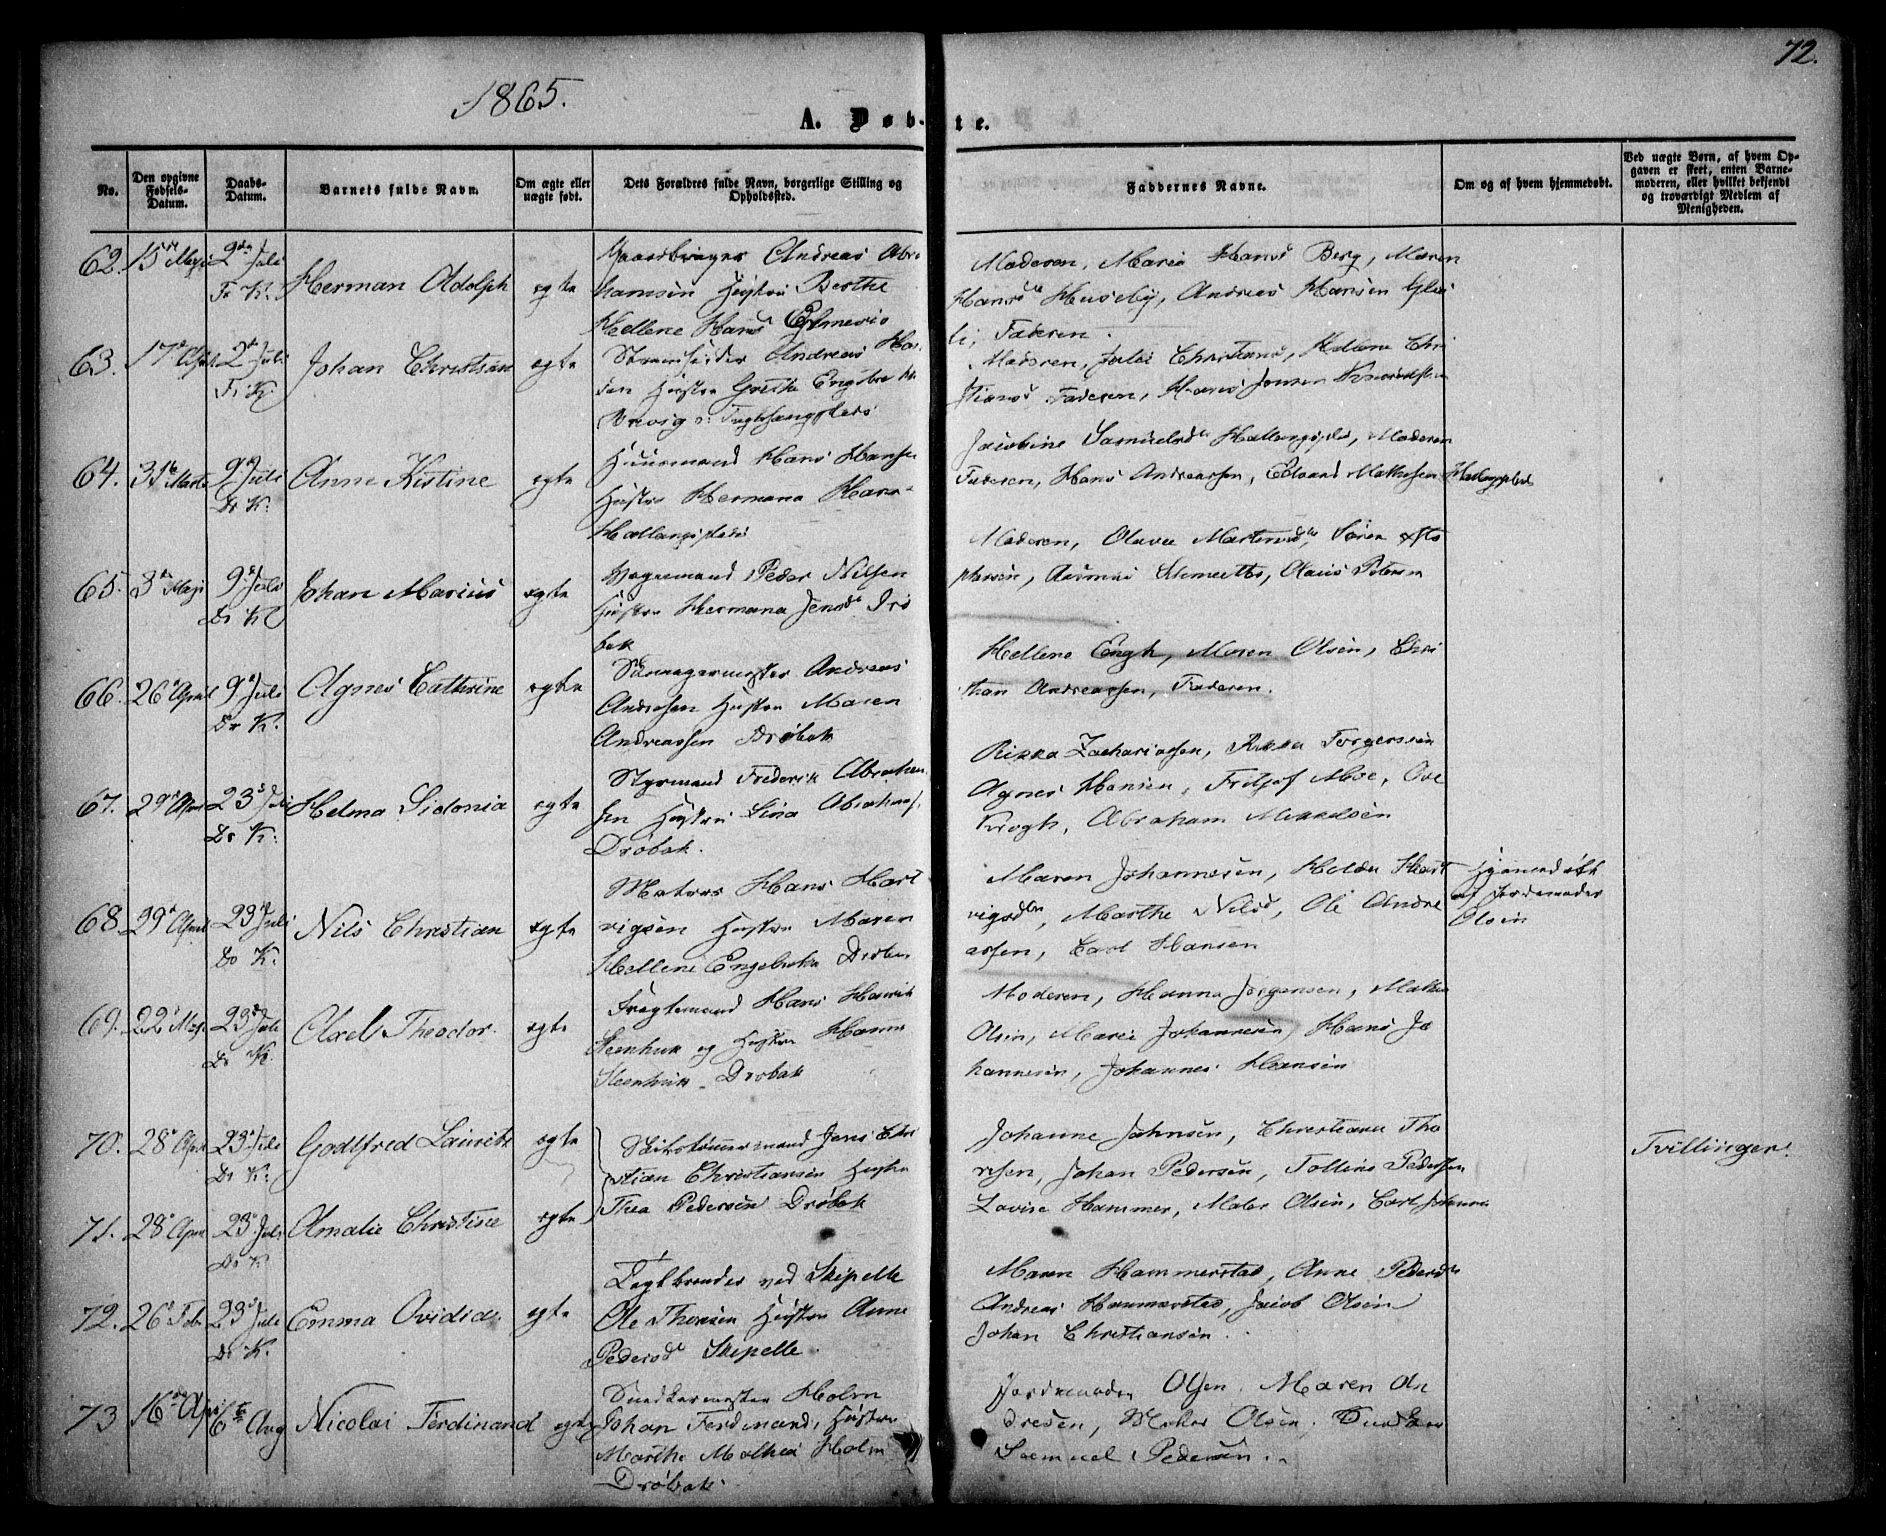 72.
1865.
A. Døbte.
No.
Den opgivne Fødsels-Datum.
Daabs-Datum.
Barnets fulde Navn.
Om ægte eller uægte født.
Dets Forældres fulde Navn, borgerlige Stilling og Opholdssted.
Faddernes Navne.
Om og af hvem hjemmedøbt.
Ved uægte Børn, af hvem Opgaven er skeet, enten Barnemoderen, eller hvilket bekjendt og troværdigt Medlem af Menigheden.
62. 15de Maji 2den Juli Fr K. Herman Adolph egte
Gaardbruger Andreas Abra
hamsen Hustru Berthe
Hellene Hansd
Moderen, Maria Hansd Berg, Maren
Hansd Huseby, Andreas Hansen
li, Faderen.
63. 17d April 2d Juli Fr K Johan Christian egte
Andreas Han
sen Hustru Grethe
Moderen, Julie Christiansd, Hellene Chri
stiansd Faderen, Hans Jensen
64. 31te Marts 9d Juli Dr K. Anne Kistine egte
Huusmand Hans Hansen
Hustru Hermana Hans
Hallangsplads
Jacobine Samuelsd Hallangspl, Moderen
Faderen, Hans Andreassen, Edvard Mathisen Hallangspladsen
65. 3d Maji 9d Juli Dr K Johan Marius egte
Vognmand Peder Nilsen
Hustru Hermana Jensd Drø
bak
Moderen, Olava Martinsd, Søren Kristo
phersen, Rasmus Olaus Petersen
66. 26d April 9d Juli Dr K. Agnes Cathrine egte
Andreas
Andresen Hustru Maren
Andreassen Drøbak
Hellene Engh, Maren Olsen, Chri
stian Andreassen, Faderen.
67. 29d April 23d Juli Dr K. Helma Sidonia egte
Styrmand Frederik Abraham
sen Hustru Lina Abrahams
Drøbak.
Rikka Zachariasen, Rikka Torgersen
Agnes Hansen, Fritjof Moe, Ove
Krogh, Abraham
68. 29d April 23d Juli Dr K. Nils Christian egte
Matros Hans Hart
vigsen Hustru Maren
Hellene Engebretsen Drøbak
Maren Johannesen, Helene Hart
vigsdtr, Marthe Nilsd, Ole Andre
assen, Carl Hansen
Hjemmedøbt
af Jordemoder
Olsen
69. 22d Maji 23d Juli Dr K. Axel Theodor. egte
Fragtemand Hans Henrik
Steenhuk og Hustru Hanna
Steenhuk. Drøbak
Moderen, Hanna Jørgensen, Mathea
Olsen, Marei Johannesen, Hans Jo
hannesen, Johannes Hansen
70. 28d April 23d Juli Dr K. Godtfred Lauritz egte
Jens Chri
stian Christiansen Hustru
Thea Pedersen Drøbak
Johanne Johnsen, Christiana Tho
resen, Johan Pedersen, Tolline Pedersen
Lovise Hammer, Maler Olsen, Carl Johannes
Tvillinger.
71. 28d April 23d Juli Dr K Amalie Christine egte
72. 26d Feb. 23d Juli Dr K. Emma Ovidia egte
Teglbrænder ved Skipelle
Ole Thoresen Hustru Anne
Pedersd Skipelle.
Maren Hammerstad, Anne Pedersd
Andreas Hammerstad, Jacob Olsen
Johan Christiansen.
73 16de April 6te Aug Nicolai Ferdinand egte
Snedkermester Holm
Johan Ferdinand, Hustru
Marthe Mathea Holm
Drøbak.
Jordemoder Olsen. Maren An
dresen, Olsen. Snedker
Samuel Pedersen.